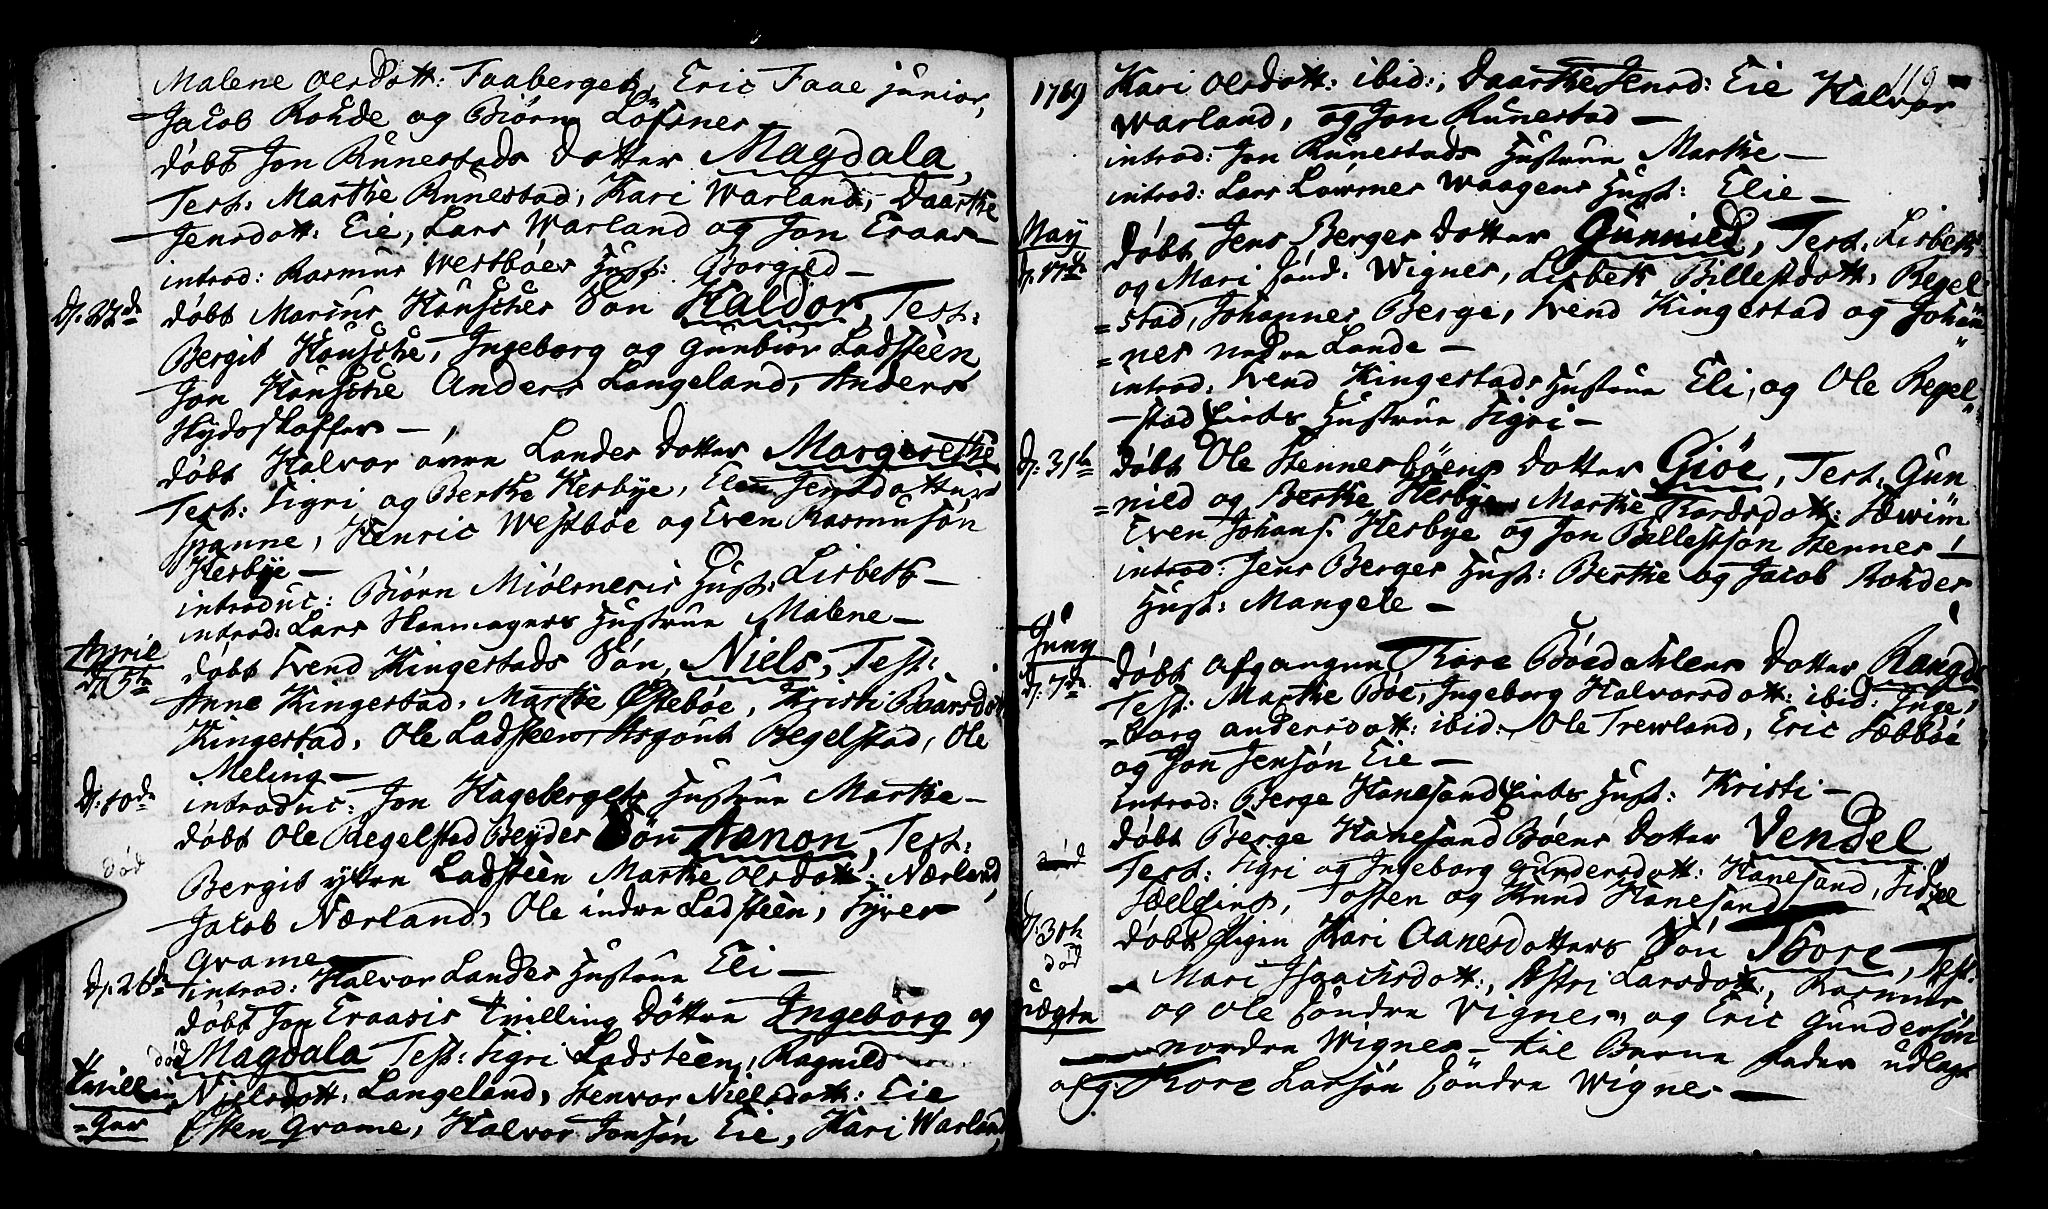 Malene Olsdott: Faaberget, Eric Faae junior,
Jacob Rohde og Biørn Løfsnes
døbt Jon Runestads dotter Magdala,
Test: Marthe Runestad, Kari Warland, Daarthe
Jensdott: Eie, Lars Warland og Jon Eraas
introd: Rasmus Westbøes Hust: Gorgild
d. 27de døbt Marius Housches Søn Haldor, Test:
Bergit Housche, Ingeborg og Gunbior Ladsteen
Jon Housche Anders Langeland, Anders
Skydsskaffer
døbt Halvor øvre Landes dotter Margerethe
Test: Sigri og Berthe Hesbye, Elen Jensdotter
Spanne, Henric Westbøe og Even Rasmusøn
Hesbye
introduc: Biørn Miølsneris Hust: Lisbeth
introd: Lars Skomagers Hustrue Malene
Aprile
d. 5te døbt Svend Kingestads Søn Niels, Test:
Anne Kingestad, Marthe Østebøe, Kristi Baarsdot
Kingestad, Ole Ladsteen, Asgout Begelstad, Ole
Meling
d. 10de introduc: Jon Hagebergets Hustrue Marthe
døbt Ole Regelstad Søn Aanon, Test:
død
Bergit yttre Ladsteen Marthe Olsdott: Nærland,
Jacob Nærland, Ole indre Ladsteen, Syver
Grame
d. 26de introd: Halvor Landes Hustrue Eli
døbt Jon Eraasis Tvilling Døttre Ingeborg og
død Magdala Test: Sigri Ladsteen, Ragnild
Tvillin Nielsdott: Langeland, Stenvor Nielsdott: Eie
=ger Osten Grame, Halvor Jonsøn Eie, Kari Warland
119
1769 Kari Olsdott: ibid:, Daarthe Jensd: Eie Halvor
Warland, og Jon Runestad
introd: Jon Runestads Hustrue Marthe
introd: Lars Lowmes Waagens Hust: Elie
May
d. 17de døbt Jens Berges dotter Gunnild, Test: Lisbeth
og Mari sønd: Wignes, Lisbeth Billestdott: Regel
=stad, Johannes Berge, Svend Kingestad og Johan
=nes nedre Lande
introd: Svend Kingestads Hustrue Eli, og Ole Regel
=stad Hustrue Sigri
d. 31te døbt Ole Stennesbøens dotter Giøe, Test: Gun
=nild og Berthe Hesbye, Marthe Tordsdott:
Even Johans: Hesbye og Jon Billestsøn Stennes
introd: Jens Berges Hust: Berthe og Jacob Rohdes
Hust: Mangele
Juny
d. 7de døbt afgangne Tore Bøedahlens dotter Rangd
Test: Marthe Bøe, Ingeborg Halvorsdott: ibid: Inge
=borg Andersdott: ibid: Ole Trewland, Eric Sæbbøe
og Jon Jensøn Eie
introd: Berge Hanesand Hust: Kristi
død døbt Berge Hanesand Bøens dotter Vendel
Test: Sigri og Ingeborg Gundersdott: Hanesand, Sidsel
Tosten og Knud Hanesand
d. 30te
død døbt Pigen Kari Aanesdotters Søn Thore, Test:
Mari Isaachsdott:, Astri Larsdott:, Rasmus
uægte og Ole søndre Vignes, og Eric Gundersøn
nordre Wignes til Barne fader udlagt
afg: Tore Larsøn søndre Wignes